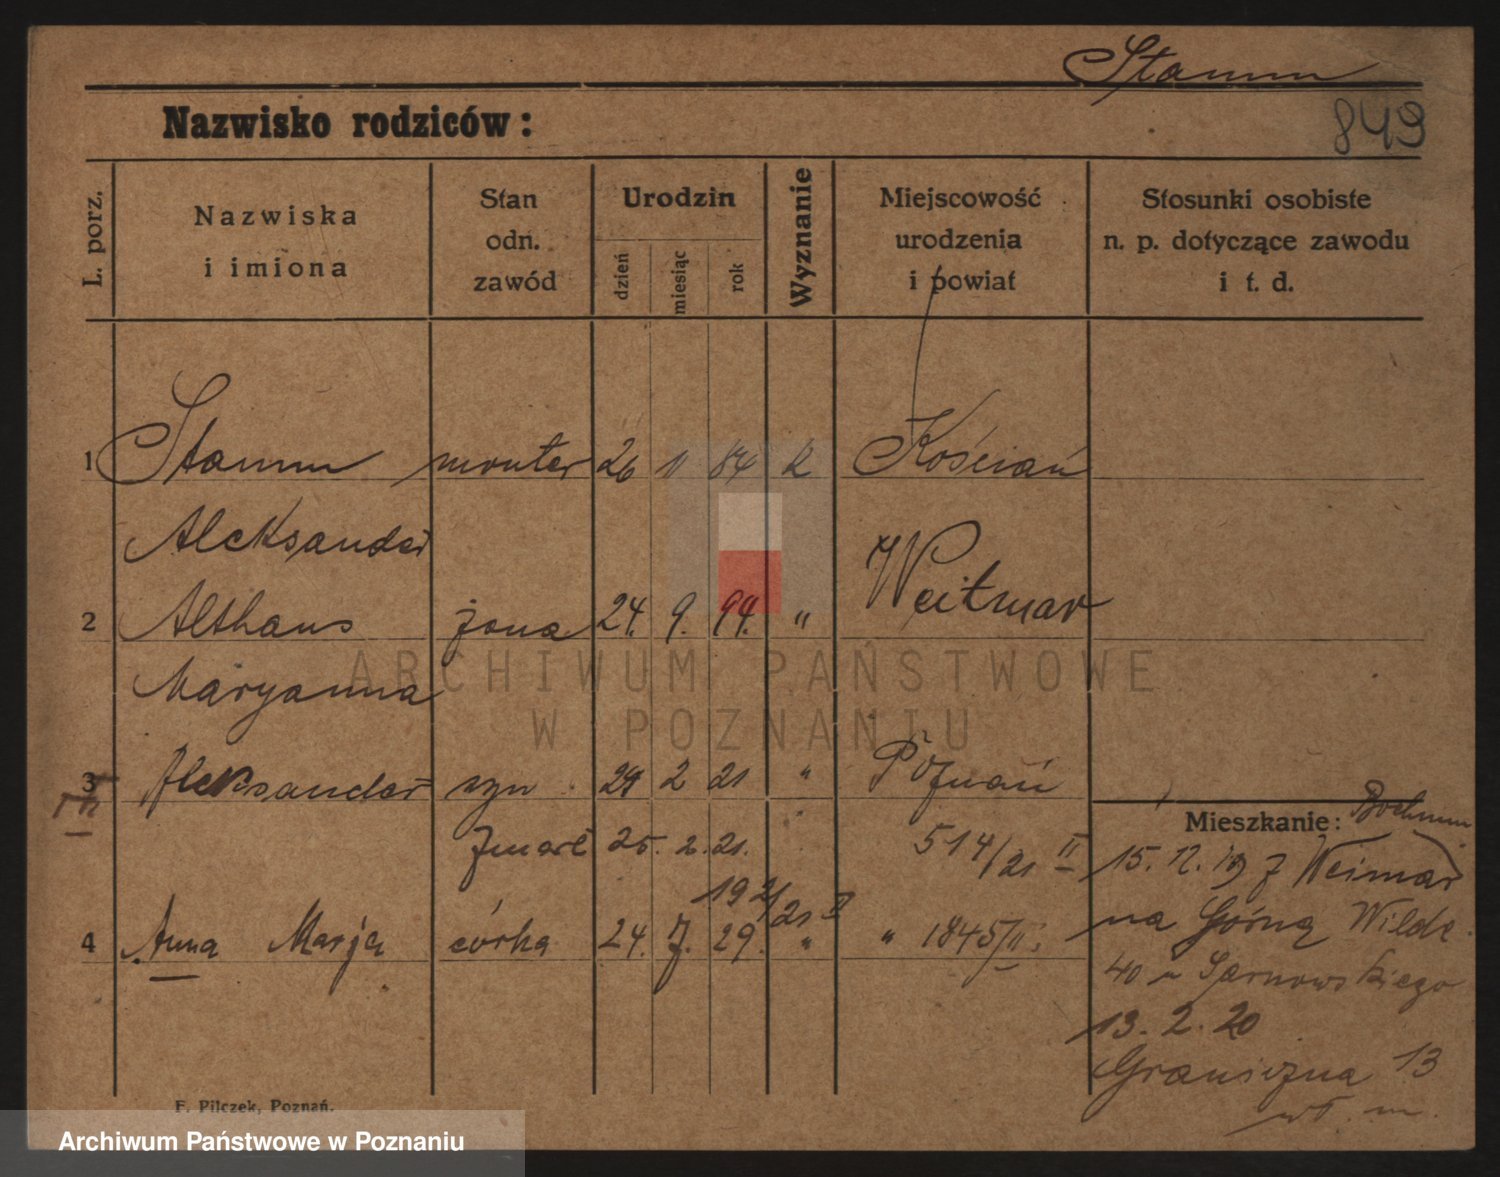 Stamm
849
Nazwisko rodziców:
L. porz.
Nazwiska
i imiona
Stan
odn.
zawód
Urodzin
dzień
miesiąc
rok
Wyznanie
Miejscowość
urodzenia
i powiat
Stosunki osobiste
n. p. dotyczące zawodu
i t. d.
1 Stamm monter 26 11 84 k Kościań
Aleksander
2 Althaus żona 24. 9. 94. " Weitmar
Maryanna
ARCHIWUM PAŃSTWOWE
W POZNANIU
3 Aleksander syn 24 2 21 " Poznań
zmarł 25. 2. 21. 514/21 II
4 Anna Marja córka 24. 7. 29. " " 1845/II.
Mieszkanie: Bochum
15. 12. 19 z Weimar
na Górną Wildę.
40 u Sarnowskiego
13. 2. 20
Graniczna 13
wł. m.
F. Pilczek, Poznań.
Archiwum Państwowe w Poznaniu